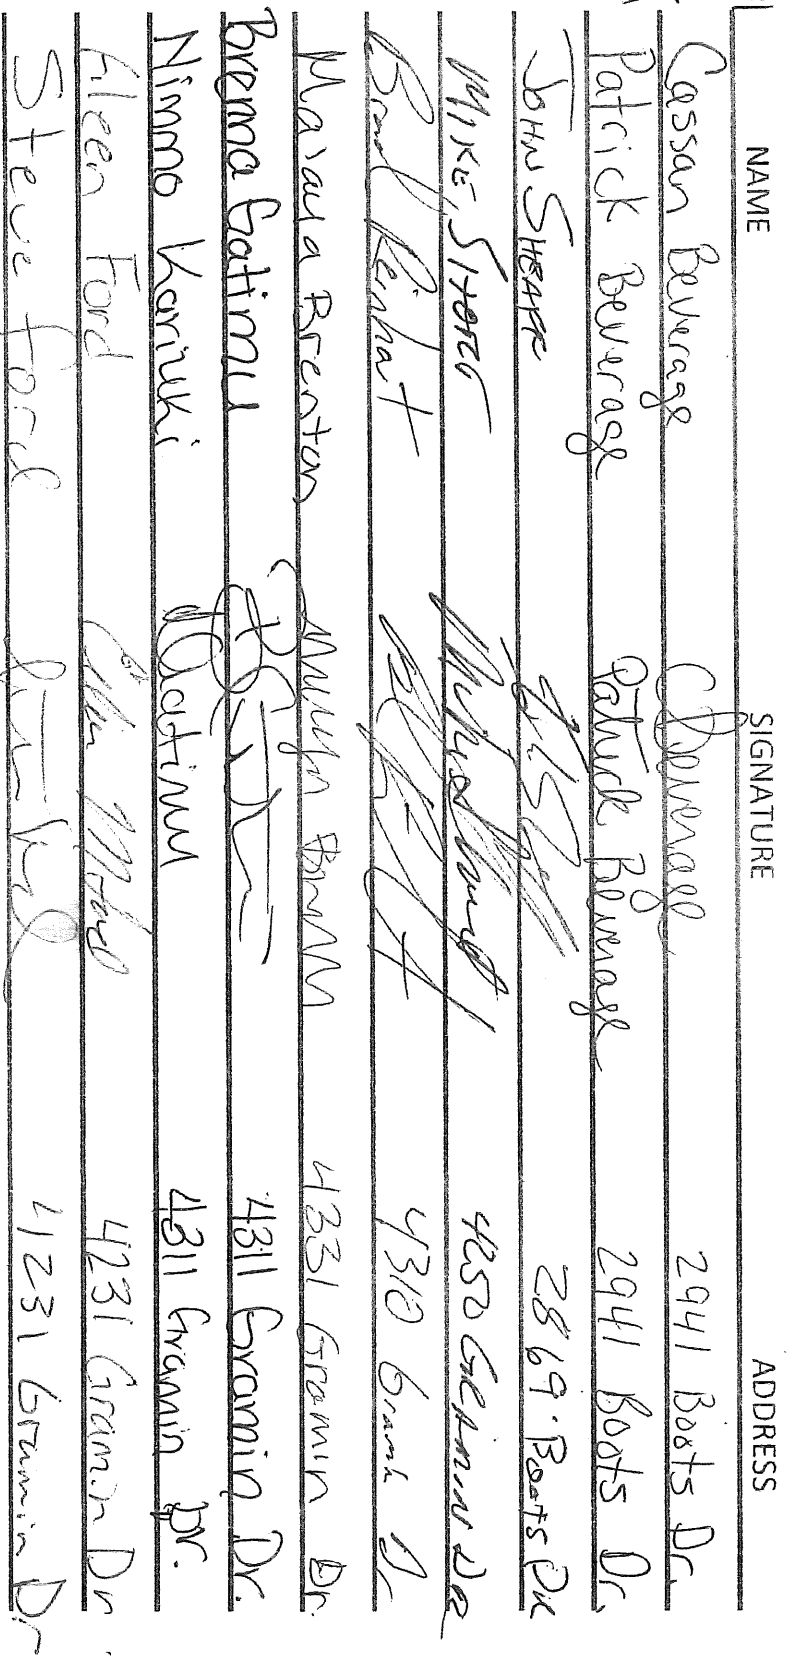 NAME SIGNATURE ADDRESS
Cassan Beverage CBeverage 2941 Boots Dr.
Patrick Beverage Patrick Beverage 2941 Boots Dr.
JOHN SHEARR 2869 Boots DR
MIKE 4250 GRAMIN DR
Brad Reinhart 4310 Gramin Dr
Brenton 4331 Gramin Dr.
Brenna Gatimu 4311 Gramin Dr.
Nimmo Kariuki Gatimu 4311 Gramin Dr.
Aleen Ford 4231 Gramin Dr.
Steve Ford 4231 Gramin Dr